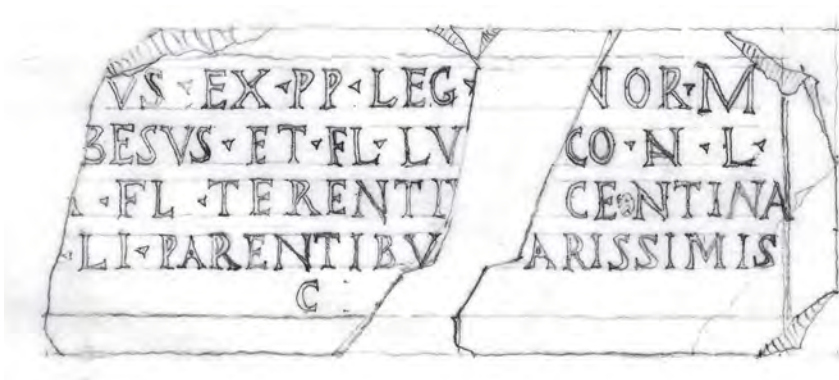 VS EX PP LEG NOR M
BESVS ET FL LV CO N L
FL TERENTI CENTINA
LI PARENTIBV ARISSIMIS
C